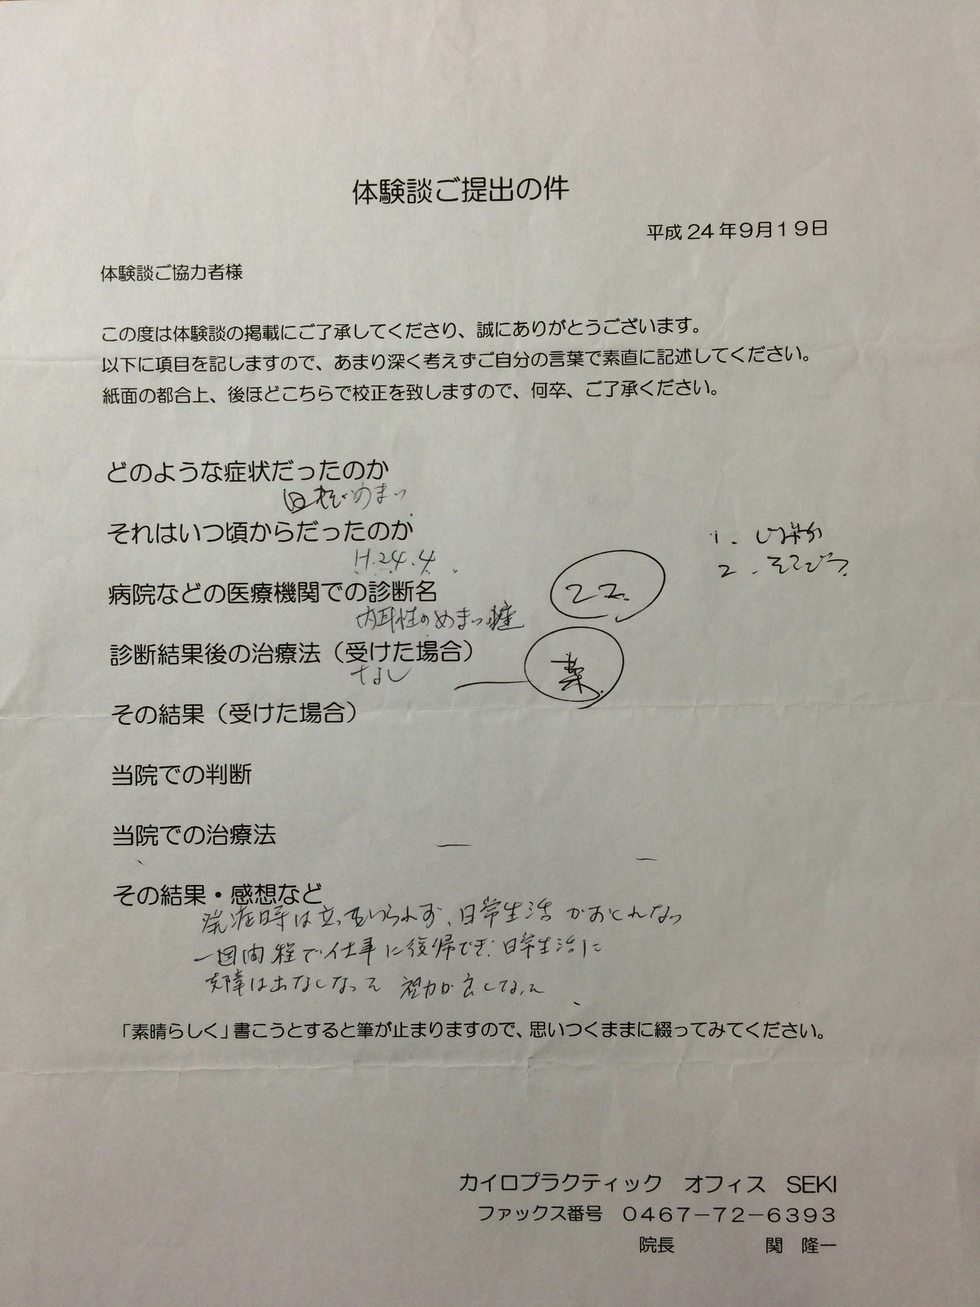 体験談ご提出の件
平成24年9月19日
体験談ご協力者様
この度は体験談の掲載にご了承してくださり、誠にありがとうございます。
以下に項目を記しますので、あまり深く考えずご自分の言葉で素直に記述してください。
紙面の都合上、後ほどこちらで校正を致しますので、何卒、ご了承ください。
どのような症状だったのか
めまい
それはいつ頃からだったのか
H.24.4
病院などの医療機関での診断名
内耳性のめまい
診断結果後の治療法（受けた場合）
なし
薬
その結果（受けた場合）
当院での判断
当院での治療法
その結果・感想など
発症時は立っていられず、日常生活がおくれなかった
一週間程で仕事に復帰でき、日常生活に
支障は出なくなった 視力が良くなった
「素晴らしく」書こうとすると筆が止まりますので、思いつくままに綴ってみてください。
カイロプラクティック オフィス SEKI
ファックス番号 0467－72－6393
院長 関 隆一